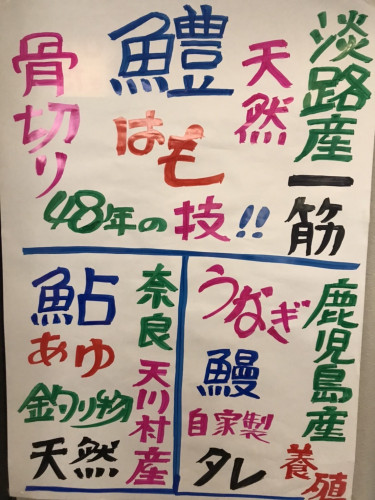 淡路産一筋
天然
鱧
はも
骨切り
48年の技!!
奈良天川村産
鮎
あゆ
釣り物
天然
鹿児島産
養殖
うなぎ
鰻
自家製
タレ